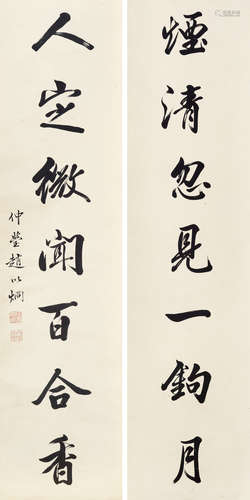 煙清忽見一鉤月
人定微聞百合香
仲瑩趙以炯